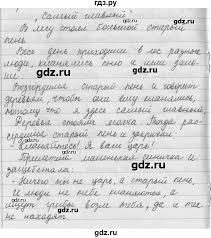 „Самый главный"
В лесу стоял большой старый
пень.
Все дни приходили в лес разные
люди, кланялись пню и шли даль-
ше.
Возгордился старый пень и говорит
деревьям, чтобы они ему кланялись,
потому что я здесь самый главный.
Деревья стоят молча. Тогда рас-
сердился старый пень и закричал:
- Кланяйтесь! Я ваш царь!
Прилетела маленькая синичка и
защебетала:
- Ничего ты не царь, а старый пень.
И люди не тебе кланяются, а
ищут грибы возле тебя, да и те
не находят.
gdz.ru
gdz.ru
gdz.ru
gdz.ru
gdz.ru
gdz.ru
gdz.ru